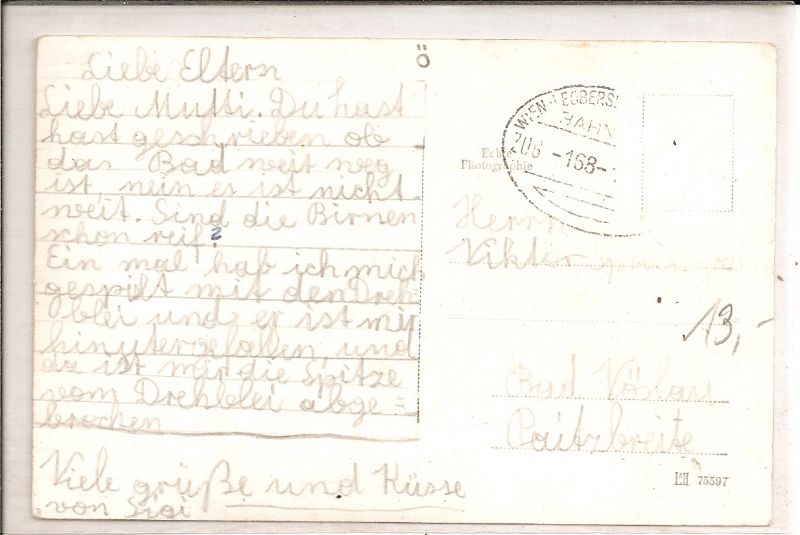 Liebe Eltern
Liebe Mutti. Du hast
hast geschrieben ob
das Bad weit weg
ist, nein es ist nicht
weit. Sind die Birnen
schon reif?
Ein mal hab ich mich
gespilt mit den Dreh-
blei und er ist mir
hinutergefallen, und
da ist mir die Spitze
vom Drehblei abge=
brochen
Viele grüße und Küsse
von Sigi
ö
WIEN-
BAHN
206 -168-
Echte
Photographie
Herrn
Viktor
13,-
Bad Vöslau
Paitzbreite
LII 75597